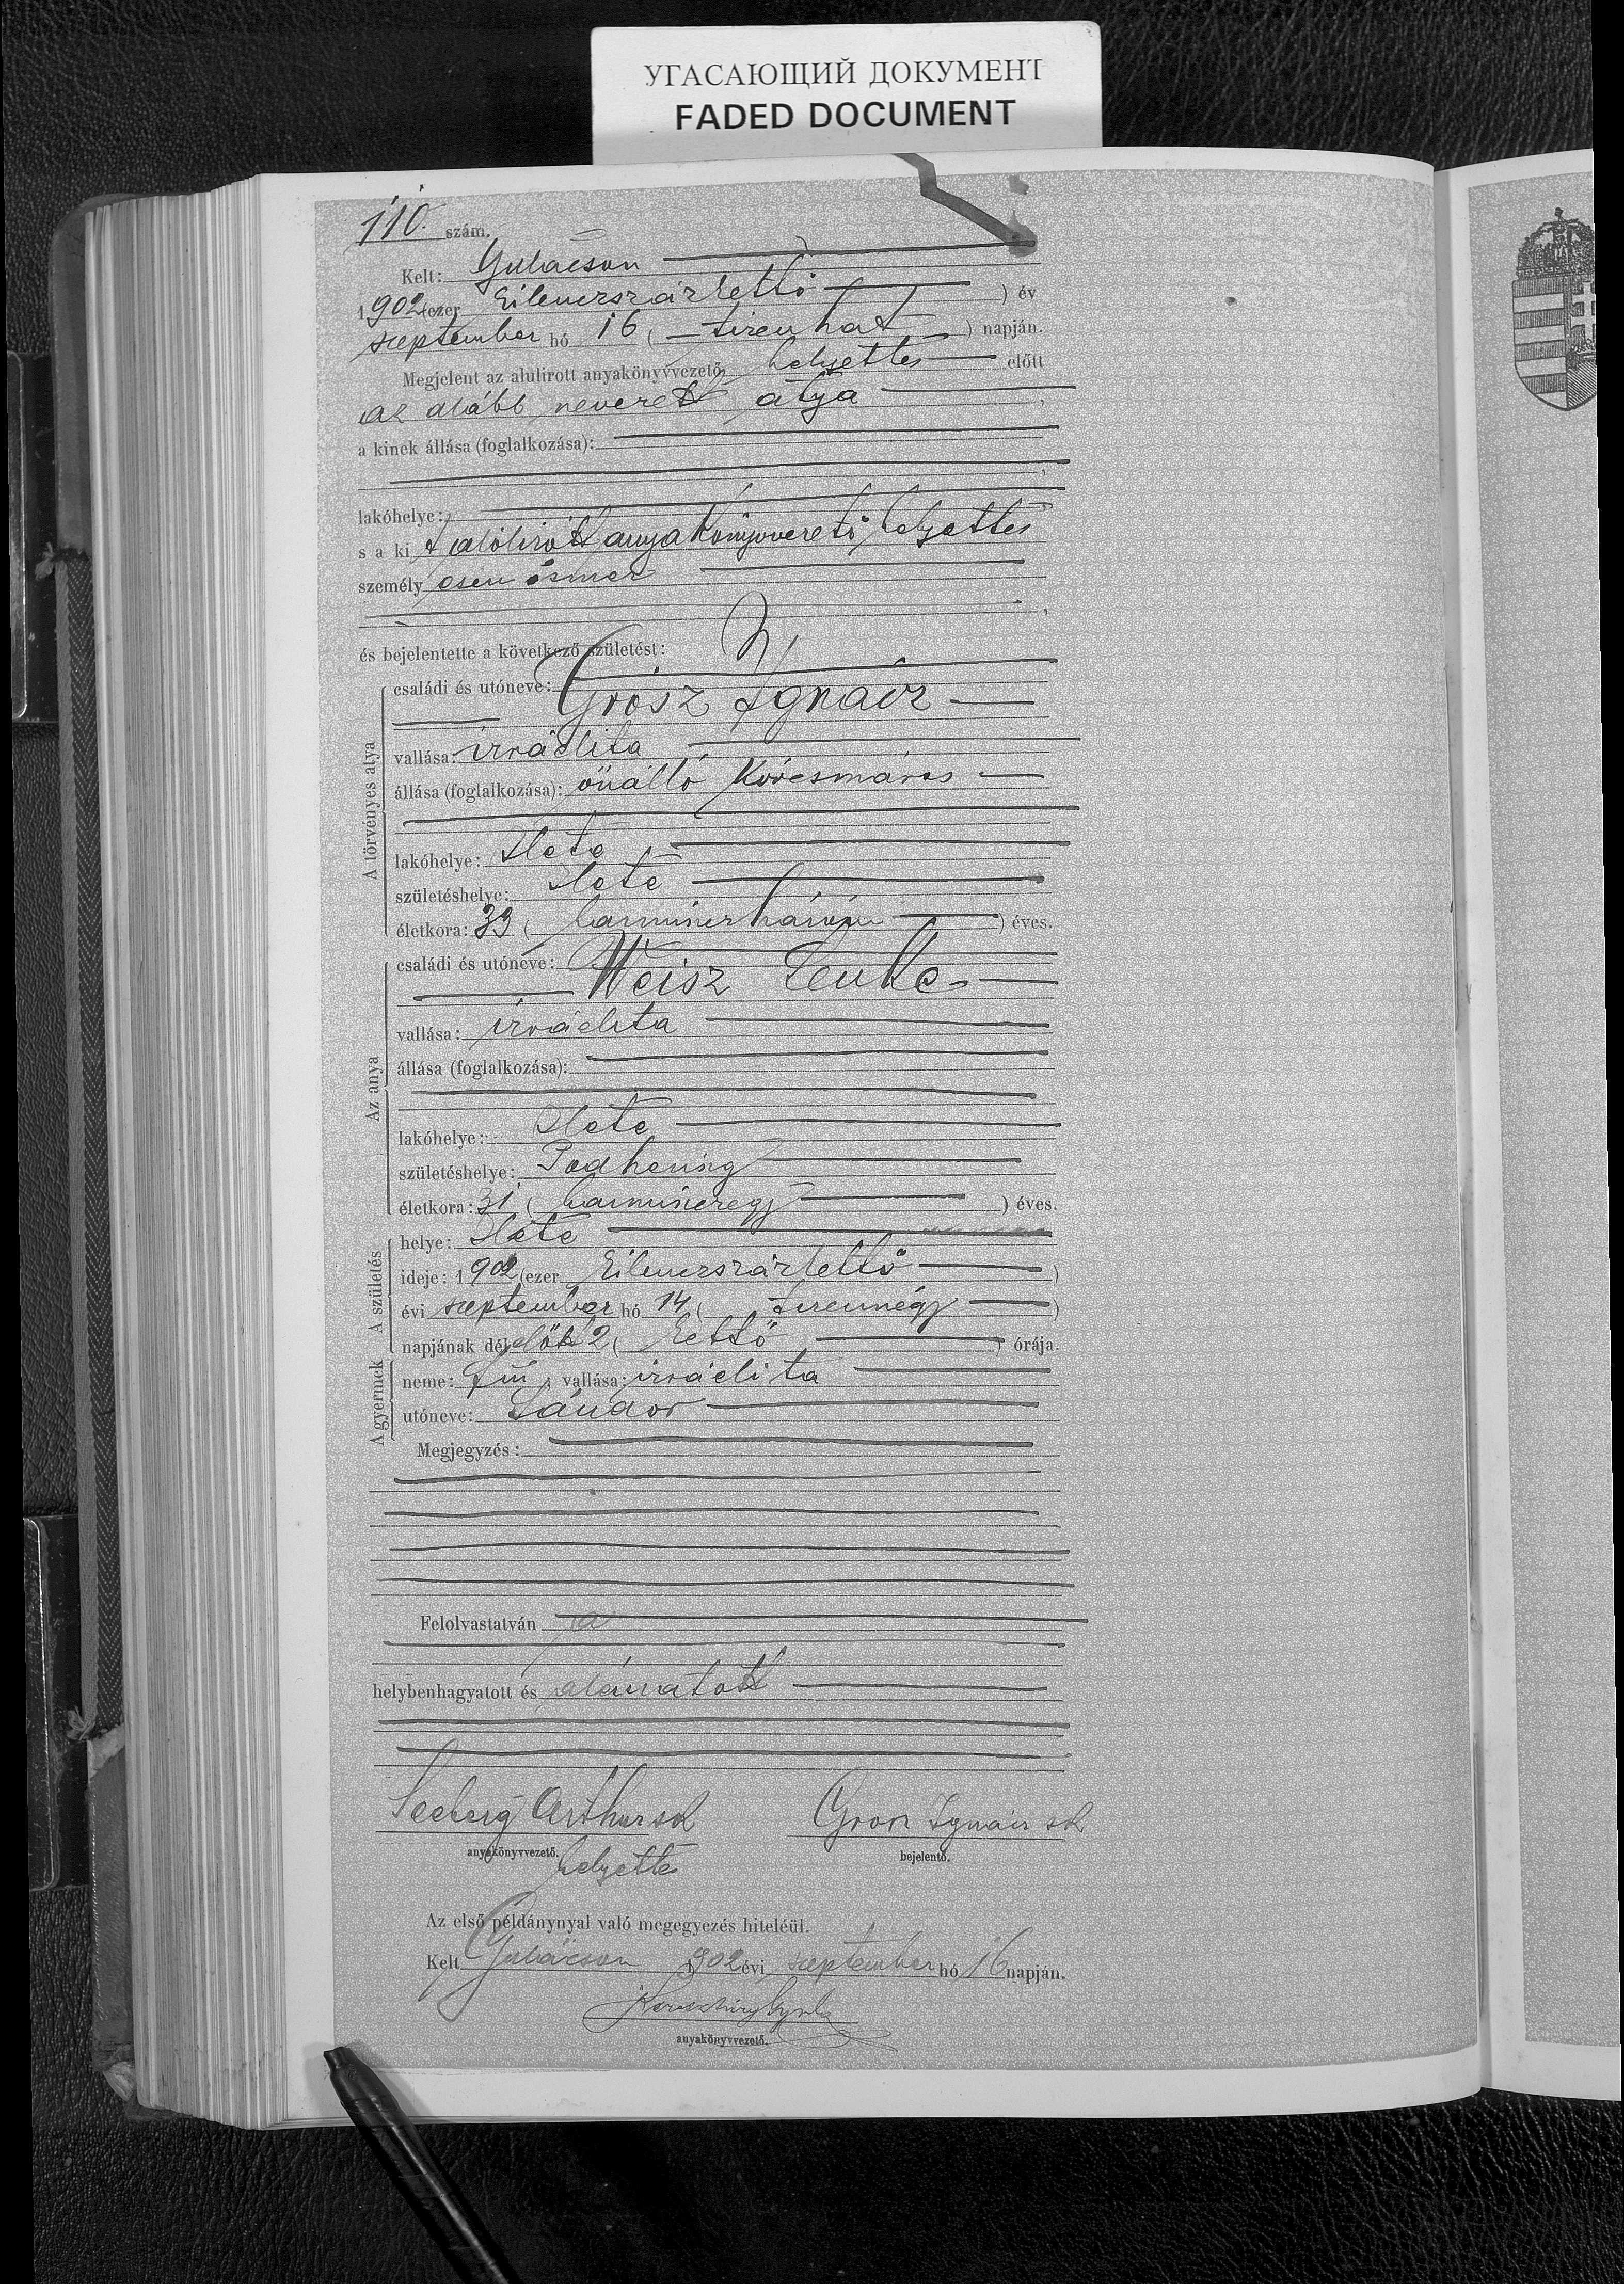 УГАСАЮЩИЙ ДОКУМЕНТ
FADED DOCUMENT
110. szám.
Kelt: Gulácson
1902 (ezer Kilencszázkettő ) év
szeptember hó 16 ( tizenhat ) napján.
Megjelent az alulirott anyakönyvvezető helyettes előtt
az alább nevezett atya
a kinek állása (foglalkozása):
lakóhelye:
s a ki t alólirott anyakönyvvezető helyettes
személyesen ismer
és bejelentette a következő születést:
A törvényes atya
családi és utóneve: Grósz Ignácz
vallása: izráelita
állása (foglalkozása): önálló Kórcsmáros
lakóhelye: Hete
születéshelye: Hete
életkora: 33 ( harminczhárom ) éves.
Az anya
családi és utóneve: Weisz
vallása: izráelita
állása (foglalkozása):
lakóhelye: Hete
születéshelye: Podhering
életkora: 31 ( harminczegy ) éves.
A születés
helye: Hete
ideje: 1902 (ezer Kilencszázkettő )
évi szeptember hó 14 ( tizennégy )
napjának délelőtt 2 ( Kettő ) órája.
A gyermek
neme: fiú ; vallása: izráelita
utóneve: Sándor
Megjegyzés:
Felolvastatván
helybenhagyatott és aláiratott
Arthur sk Grosz Ignácz sk
anyakönyvvezető. bejelentő.
helyettes
Az első példánynyal való megegyezés hiteléül.
Kelt Gulácson 1902 évi szeptember hó 16 napján.
anyakönyvvezető.